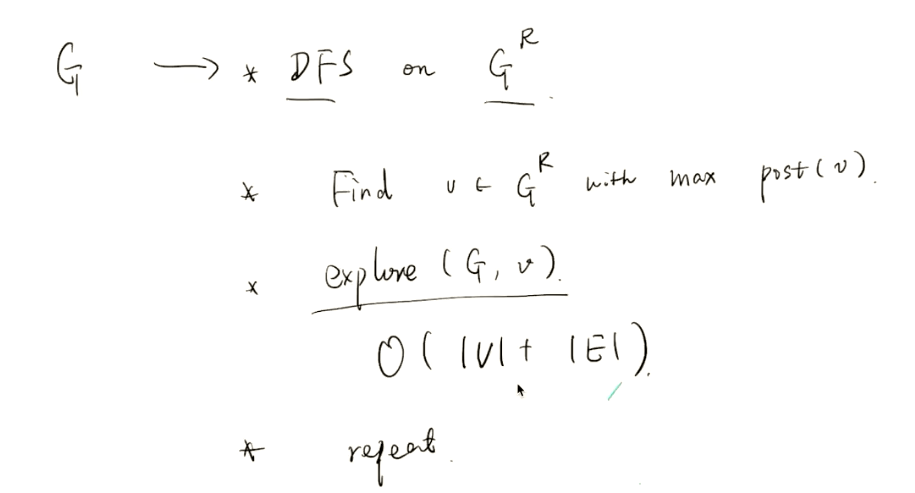 G → * DFS on G^R.
* Find v ∈ G^R with max post(v).
* explore (G, v).
O( |V| + |E| ).
* repeat.